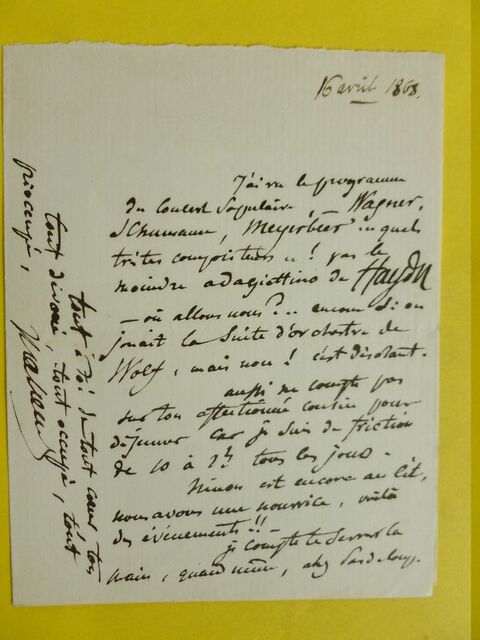 16 avril 1868.
J'ai vu le programme
du Concert Populaire, Wagner,
Schumann, Meyerbeer quels
tristes compositeurs ! pas le
moindre adagiettino de Haydn
— où allons nous ?.. encore si on
jouait la Suite d'orchestre de
Wolf, mais non ! c'est désolant.
aussi ne compte pas
sur ton affectionné cousin pour
déjeuner car je suis de friction
de 10 à 2h tous les jours -
Ninon est encore au lit,
nous avons une nourrice, voilà
des événements !!
je compte te serrer la
main, quand même, chez Pasdeloup.
tout à toi de tout cœur, ton
tout dévoué, tout occupé, tout
préoccupé,